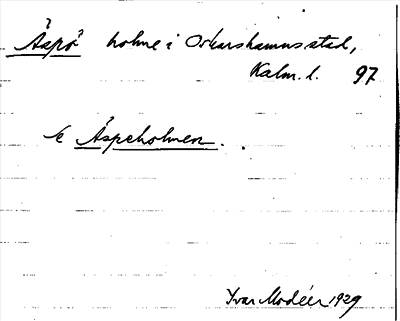 Äspö holme i Oskarshamns stad,
Kalm. l. 97
Se Äspeholmen.
Ivar Modéer 1929